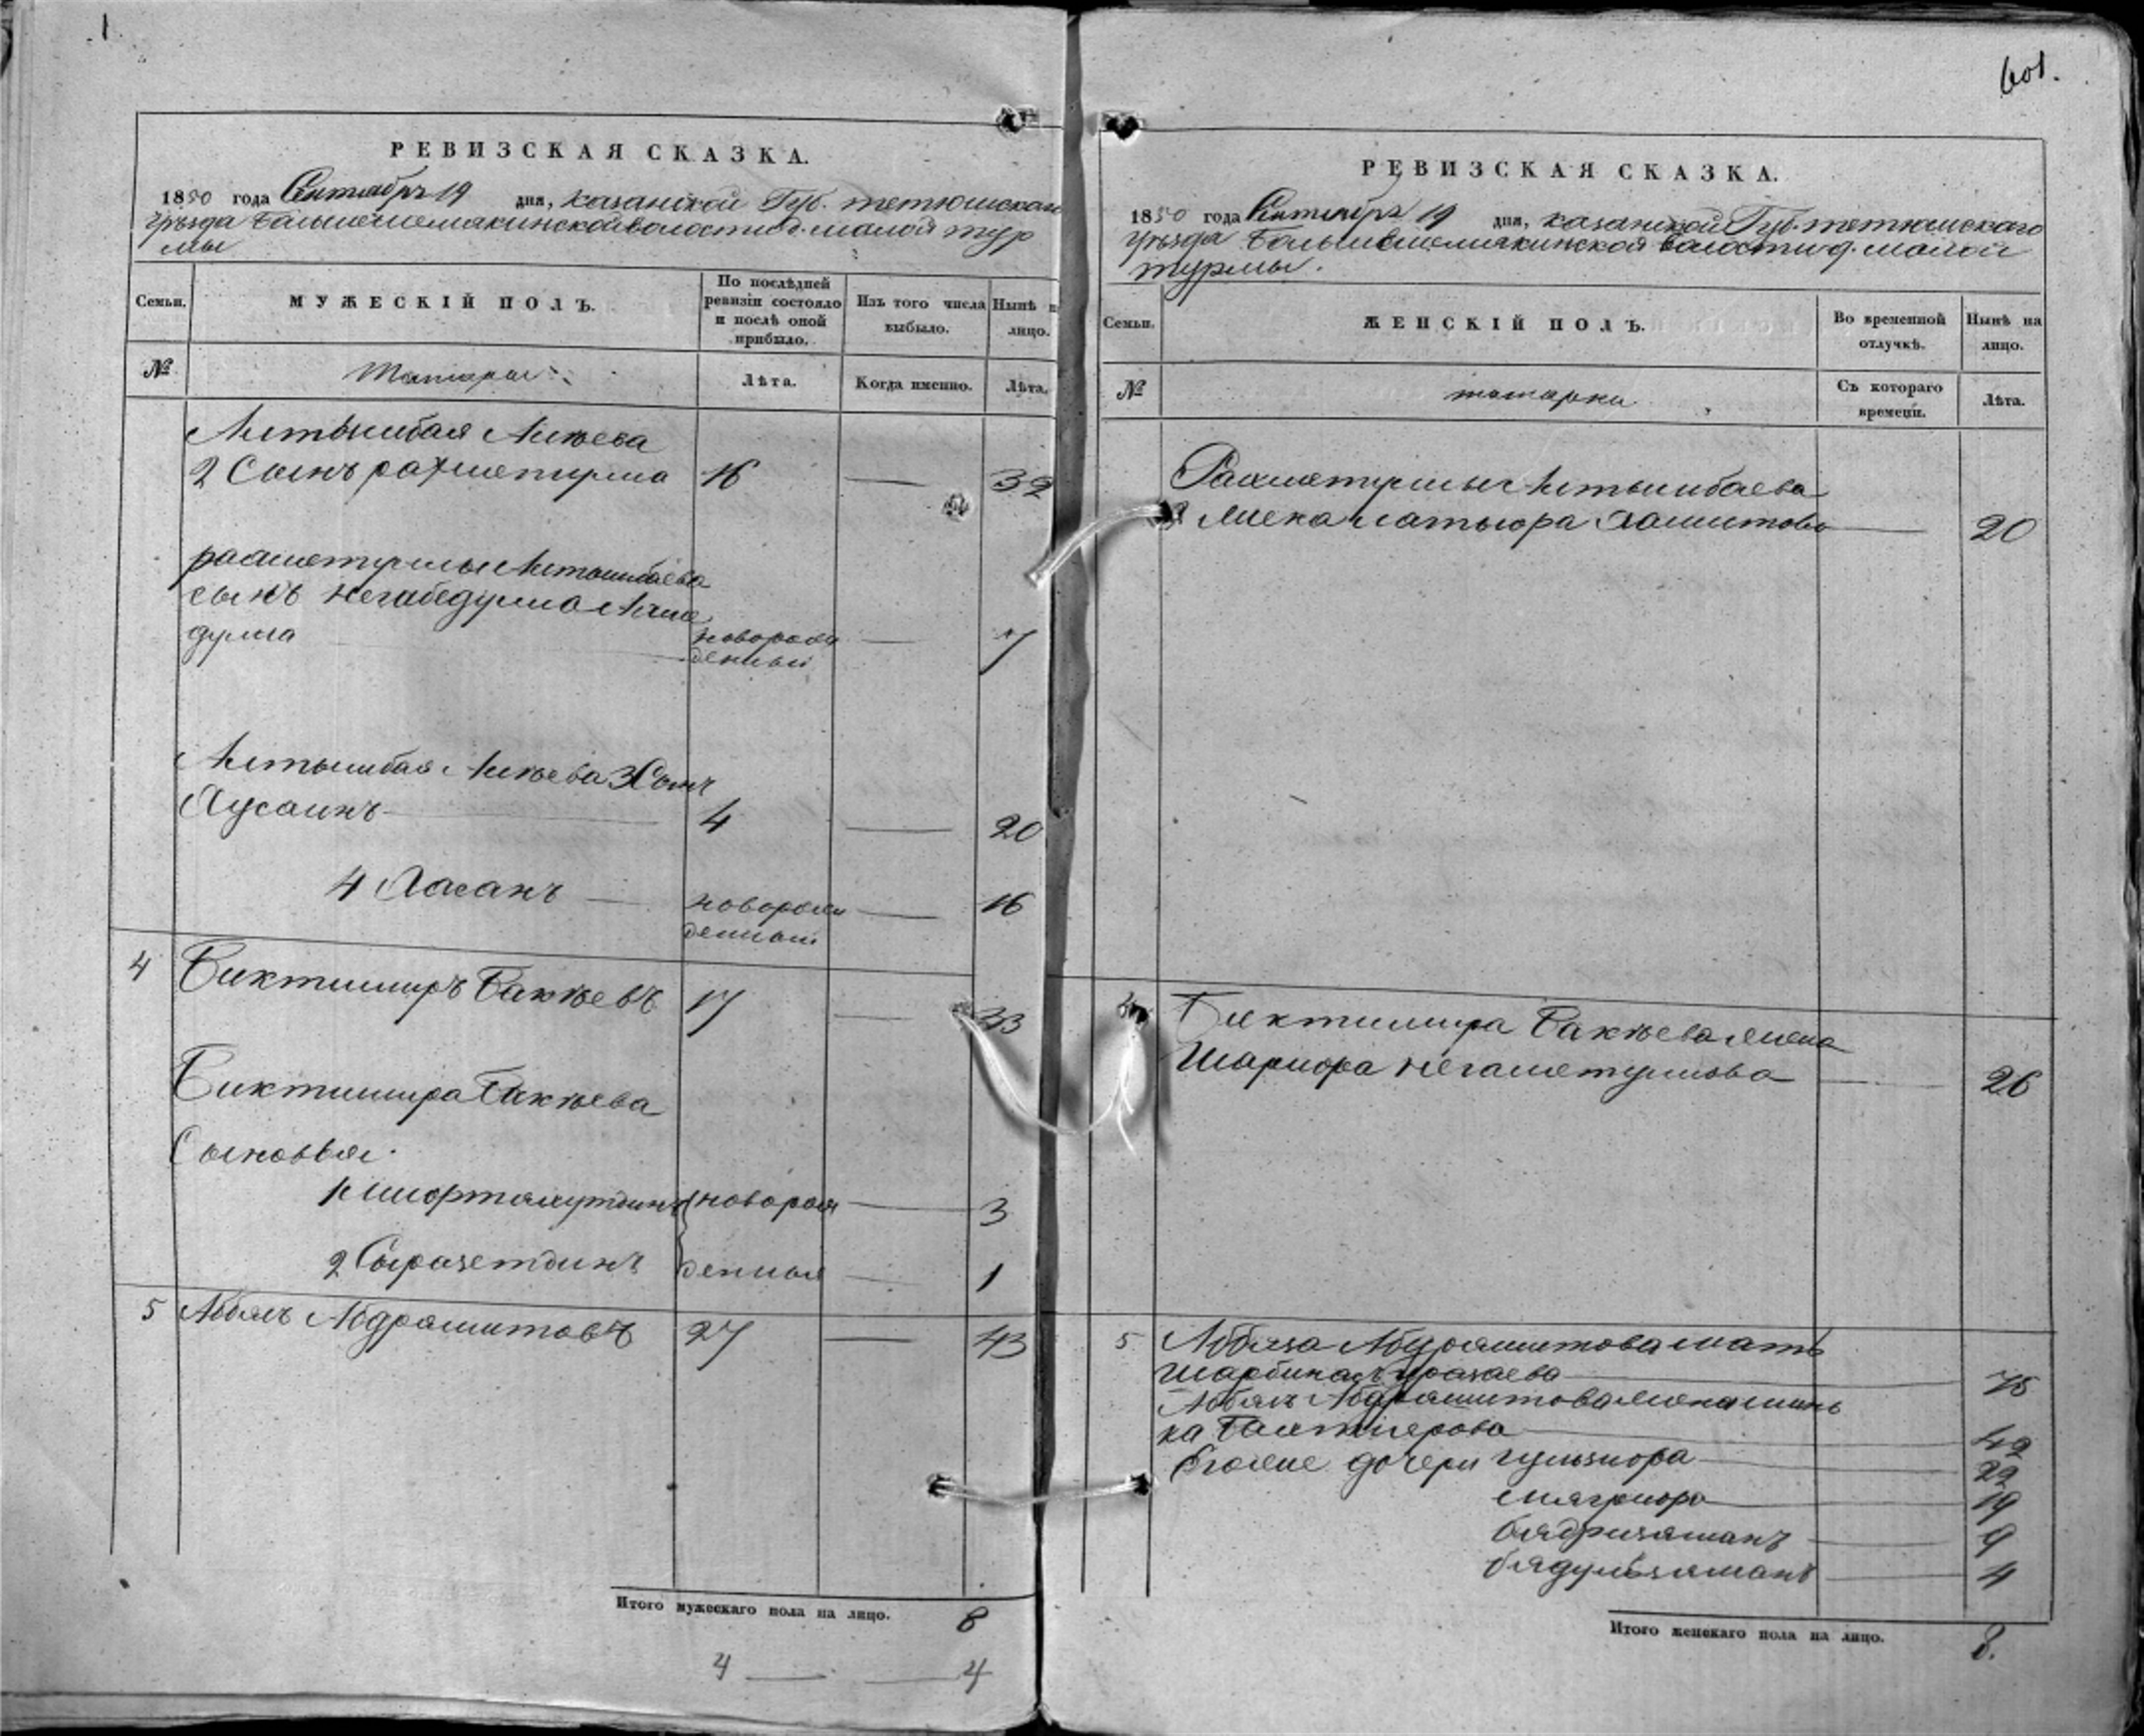 1
РЕВИЗСКАЯ СКАЗКА.
1850 года Сентября 19 дня, казанской Губ. тетюшскаго
уѣзда большешемякинской волости д. малой тур
мы
Семьи.
МУЖЕСКІЙ ПОЛЪ.
По послѣдней ревизіи состояло и послѣ оной прибыло.
Изъ того числа выбыло.
Нынѣ н лицо.
№
татары
Лѣта.
Когда именно.
Лѣта.
Алтынбая Акѣева
2 Сынъ рахметулла 16 — 32
рахметуллы Алтынбаева
сынъ негабедулла Ахме
дулла новорож — 7
денный
Алтынбая Акѣева 3 Сынъ
Хусаинъ — 4 — 20
4 Хасанъ — новорож — 16
денный
4 Биктимиръ Бакѣевъ 17 — 33
Биктимира Бакѣева
Сыновья.
1 новорож — 3
2 Сыразетдинъ денныя — 1
5 Аббязъ Абдрашитовъ 27 — 43
Итого мужескаго пола на лицо. 8
4 — — 4
601.
РЕВИЗСКАЯ СКАЗКА.
1850 года Сентября 19 дня, казанской Губ. тетюшскаго
уѣзда большешемякинской волости д. малой
турмы.
Семьи.
ЖЕНСКІЙ ПОЛЪ.
Во временной отлучкѣ.
Нынѣ на лицо.
№
татарки
Съ котораго времени.
Лѣта.
Рахметуллы Алтынбаева
жена Хашитова — 20
4 Биктимира Бакѣева жена
Шарифа негаметуллова — 26
5 Аббяза Абдрашитова мать
Шарбина — 75
Аббязъ Абдрашитова жена
ка — 42
Егоже дочери гульзюра — 22
— 19
бядризяманъ — 9
бядулзяманъ — 4
Итого женскаго пола на лицо. 8.